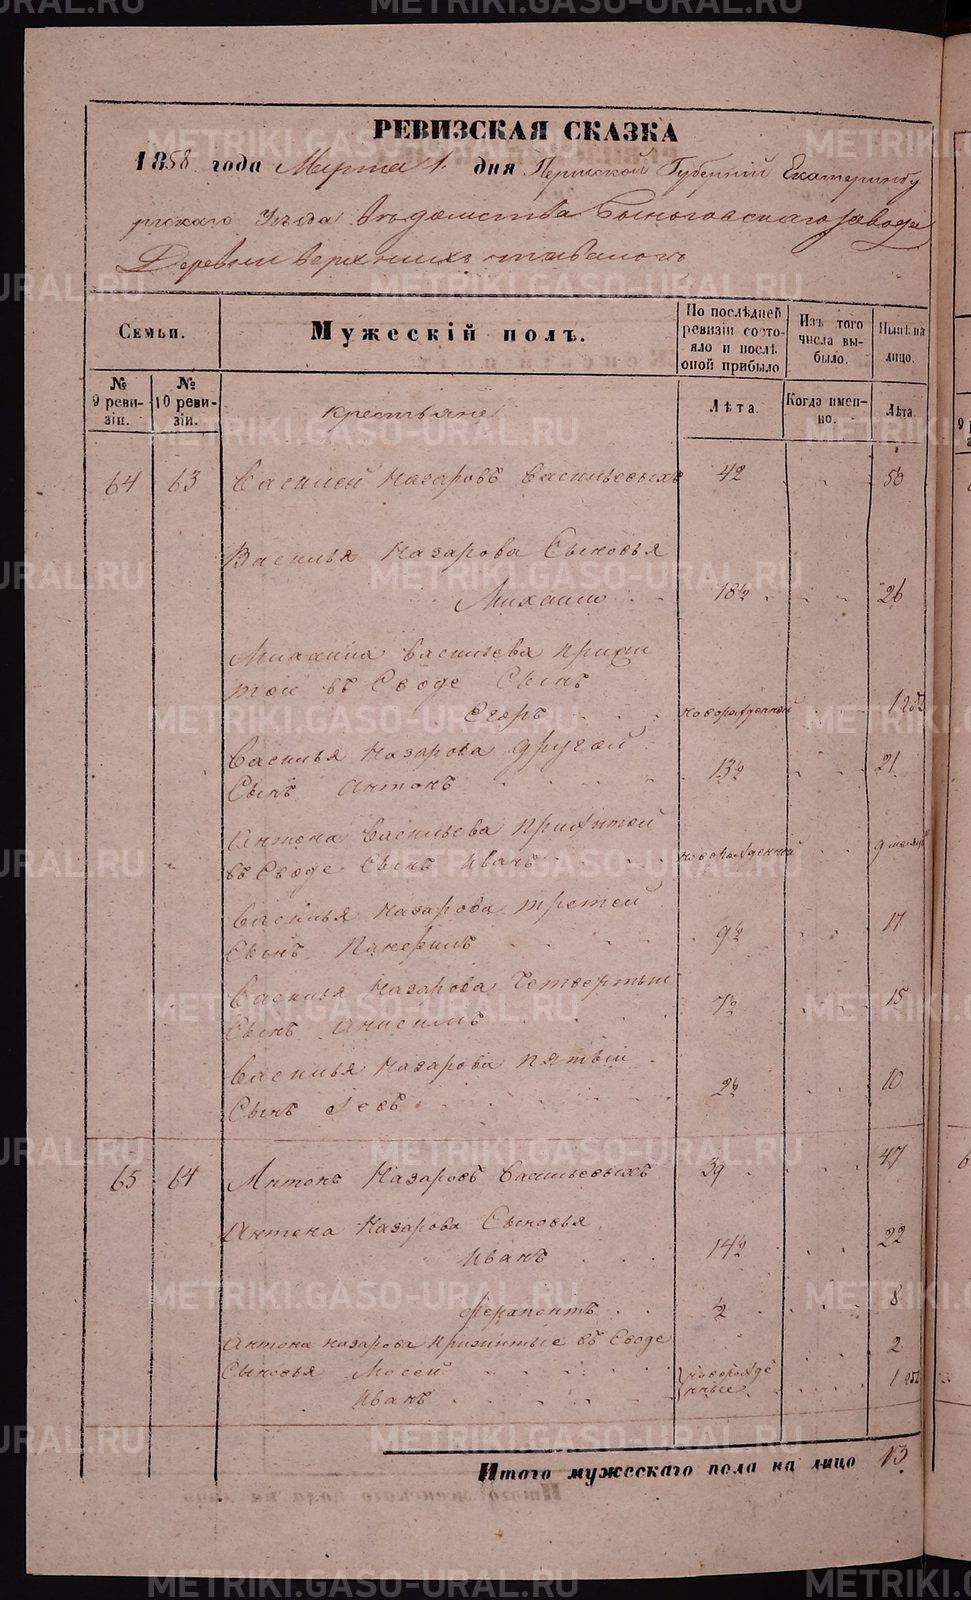 РЕВИЗСКАЯ СКАЗКА
1858 года Марта 1 дня Пермской Губерніи Екатеринбу
ргскаго Уѣзда Вѣдомства завода
Деревни Верхнихъ
Семьи.
Мужескій полъ.
По послѣдней ревизіи состояло и послѣ оной прибыло
Изъ того числа выбыло.
Нынѣ на лицо.
№ 9 ревизіи.
№ 10 ревизіи.
Лѣта.
Когда именно.
Лѣта.
Крестьяне
64 63 Василей Назаровъ Васильевыхъ 42 50
Василья Назарова Сыновья
Михаило 18½ 26
Михаила Васильева прижи
той въ Сводѣ Сынъ
Егоръ новорожденной 1
Василья Назарова другой
Сынъ Антонъ 13½ 21
Антона Васильева прижитой
въ Сводѣ Сынъ Иванъ новорожденной 9
Василья Назарова третей
Сынъ 9½ 17
Василья Назарова Четвертый
Сынъ Анисимъ 7½ 15
Василья Назарова пятый
Сынъ Левъ 2½ 10
65 64 Антонъ Назаровъ Васильевыхъ 39 47
Антона Назарова Сыновья
Иванъ 14½ 22
Ферапонтъ ½ 8
Антона Назарова прижитые въ Сводѣ
Сыновья Мосей 2
Иванъ новорожденные 1
Итого мужескаго пола на лицо 13
METRIKI.GASO-URAL.RU